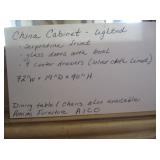 China Cabinet - Lighted
- Serpentine front
- glass doors with bevel
- 4 center drawers (silver cloth lined)
72"W x 19"D x 90"H
Dining table / Chairs also available
Amini Furniture AICO